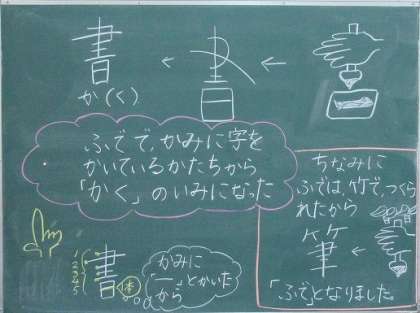 書
か(く)
ふでで、かみに字を
かいているかたちから
「かく」のいみになった
ちなみに
ふでは、竹で、つくら
れたから
筆
「ふで」となりました。
1
2
3
4
5
書
1本
かみに
「一」とかいた
から